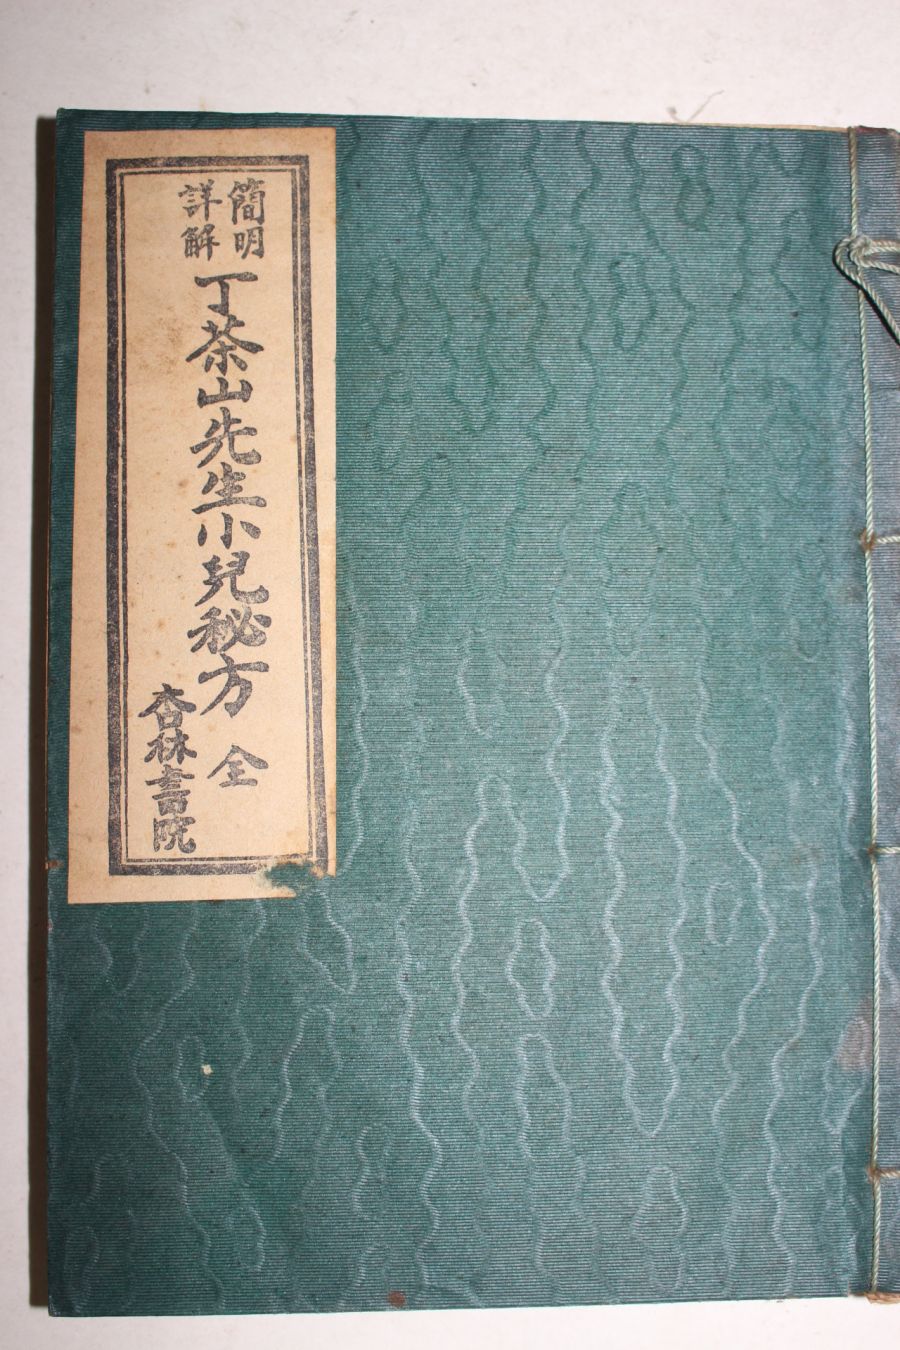 簡明
詳解
丁茶山先生小兒秘方 全
杏林書院